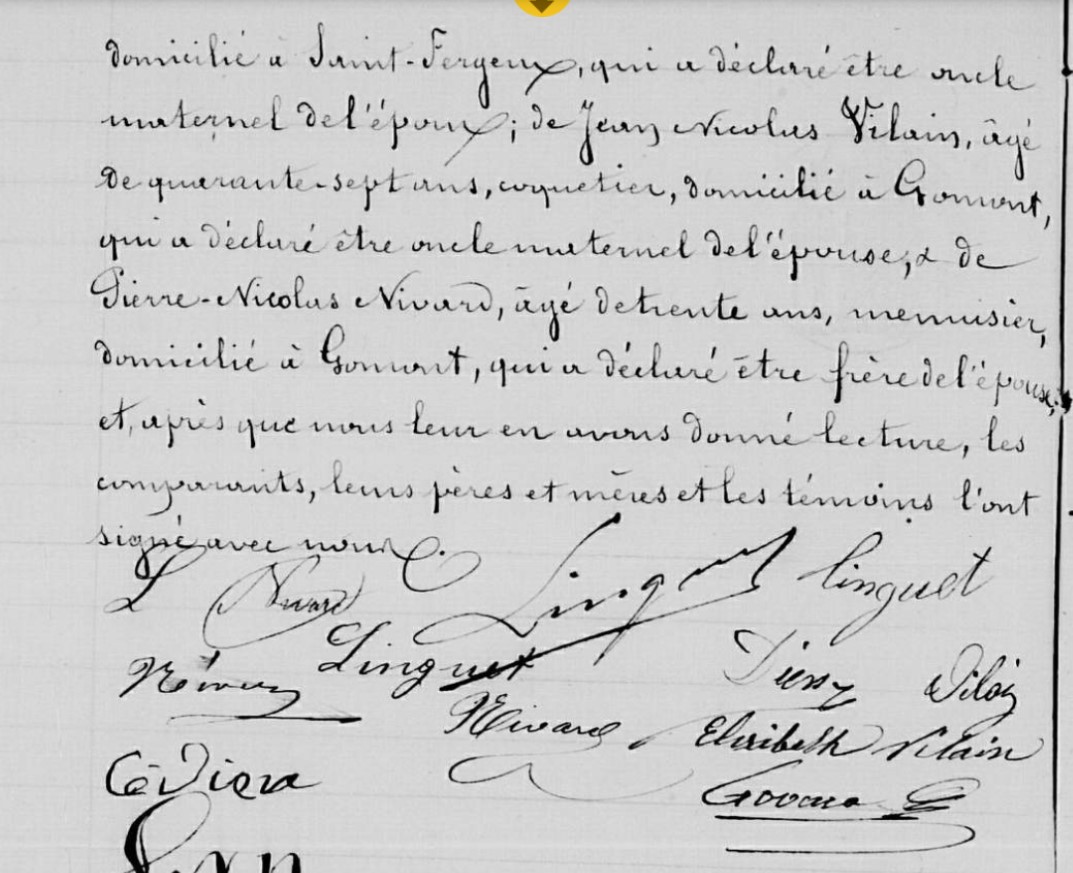 domicilié à Saint-Fergeux, qui a déclaré être oncle
maternel de l'époux; de Jean Nicolas Vilain, âgé
de quarante-sept ans, coquetier, domicilié à Gomont,
qui a déclaré être oncle maternel de l'épouse, & de
Pierre-Nicolas Nivard, âgé de trente ans, menuisier,
domicilié à Gomont, qui a déclaré être frère de l'épouse;
et, après que nous leur en avons donné lecture, les
comparants, leurs pères et mères et les témoins l'ont
signé avec nous.
L Nivard Linguet linguet
Linguet
Nivard Elisabeth Vilain